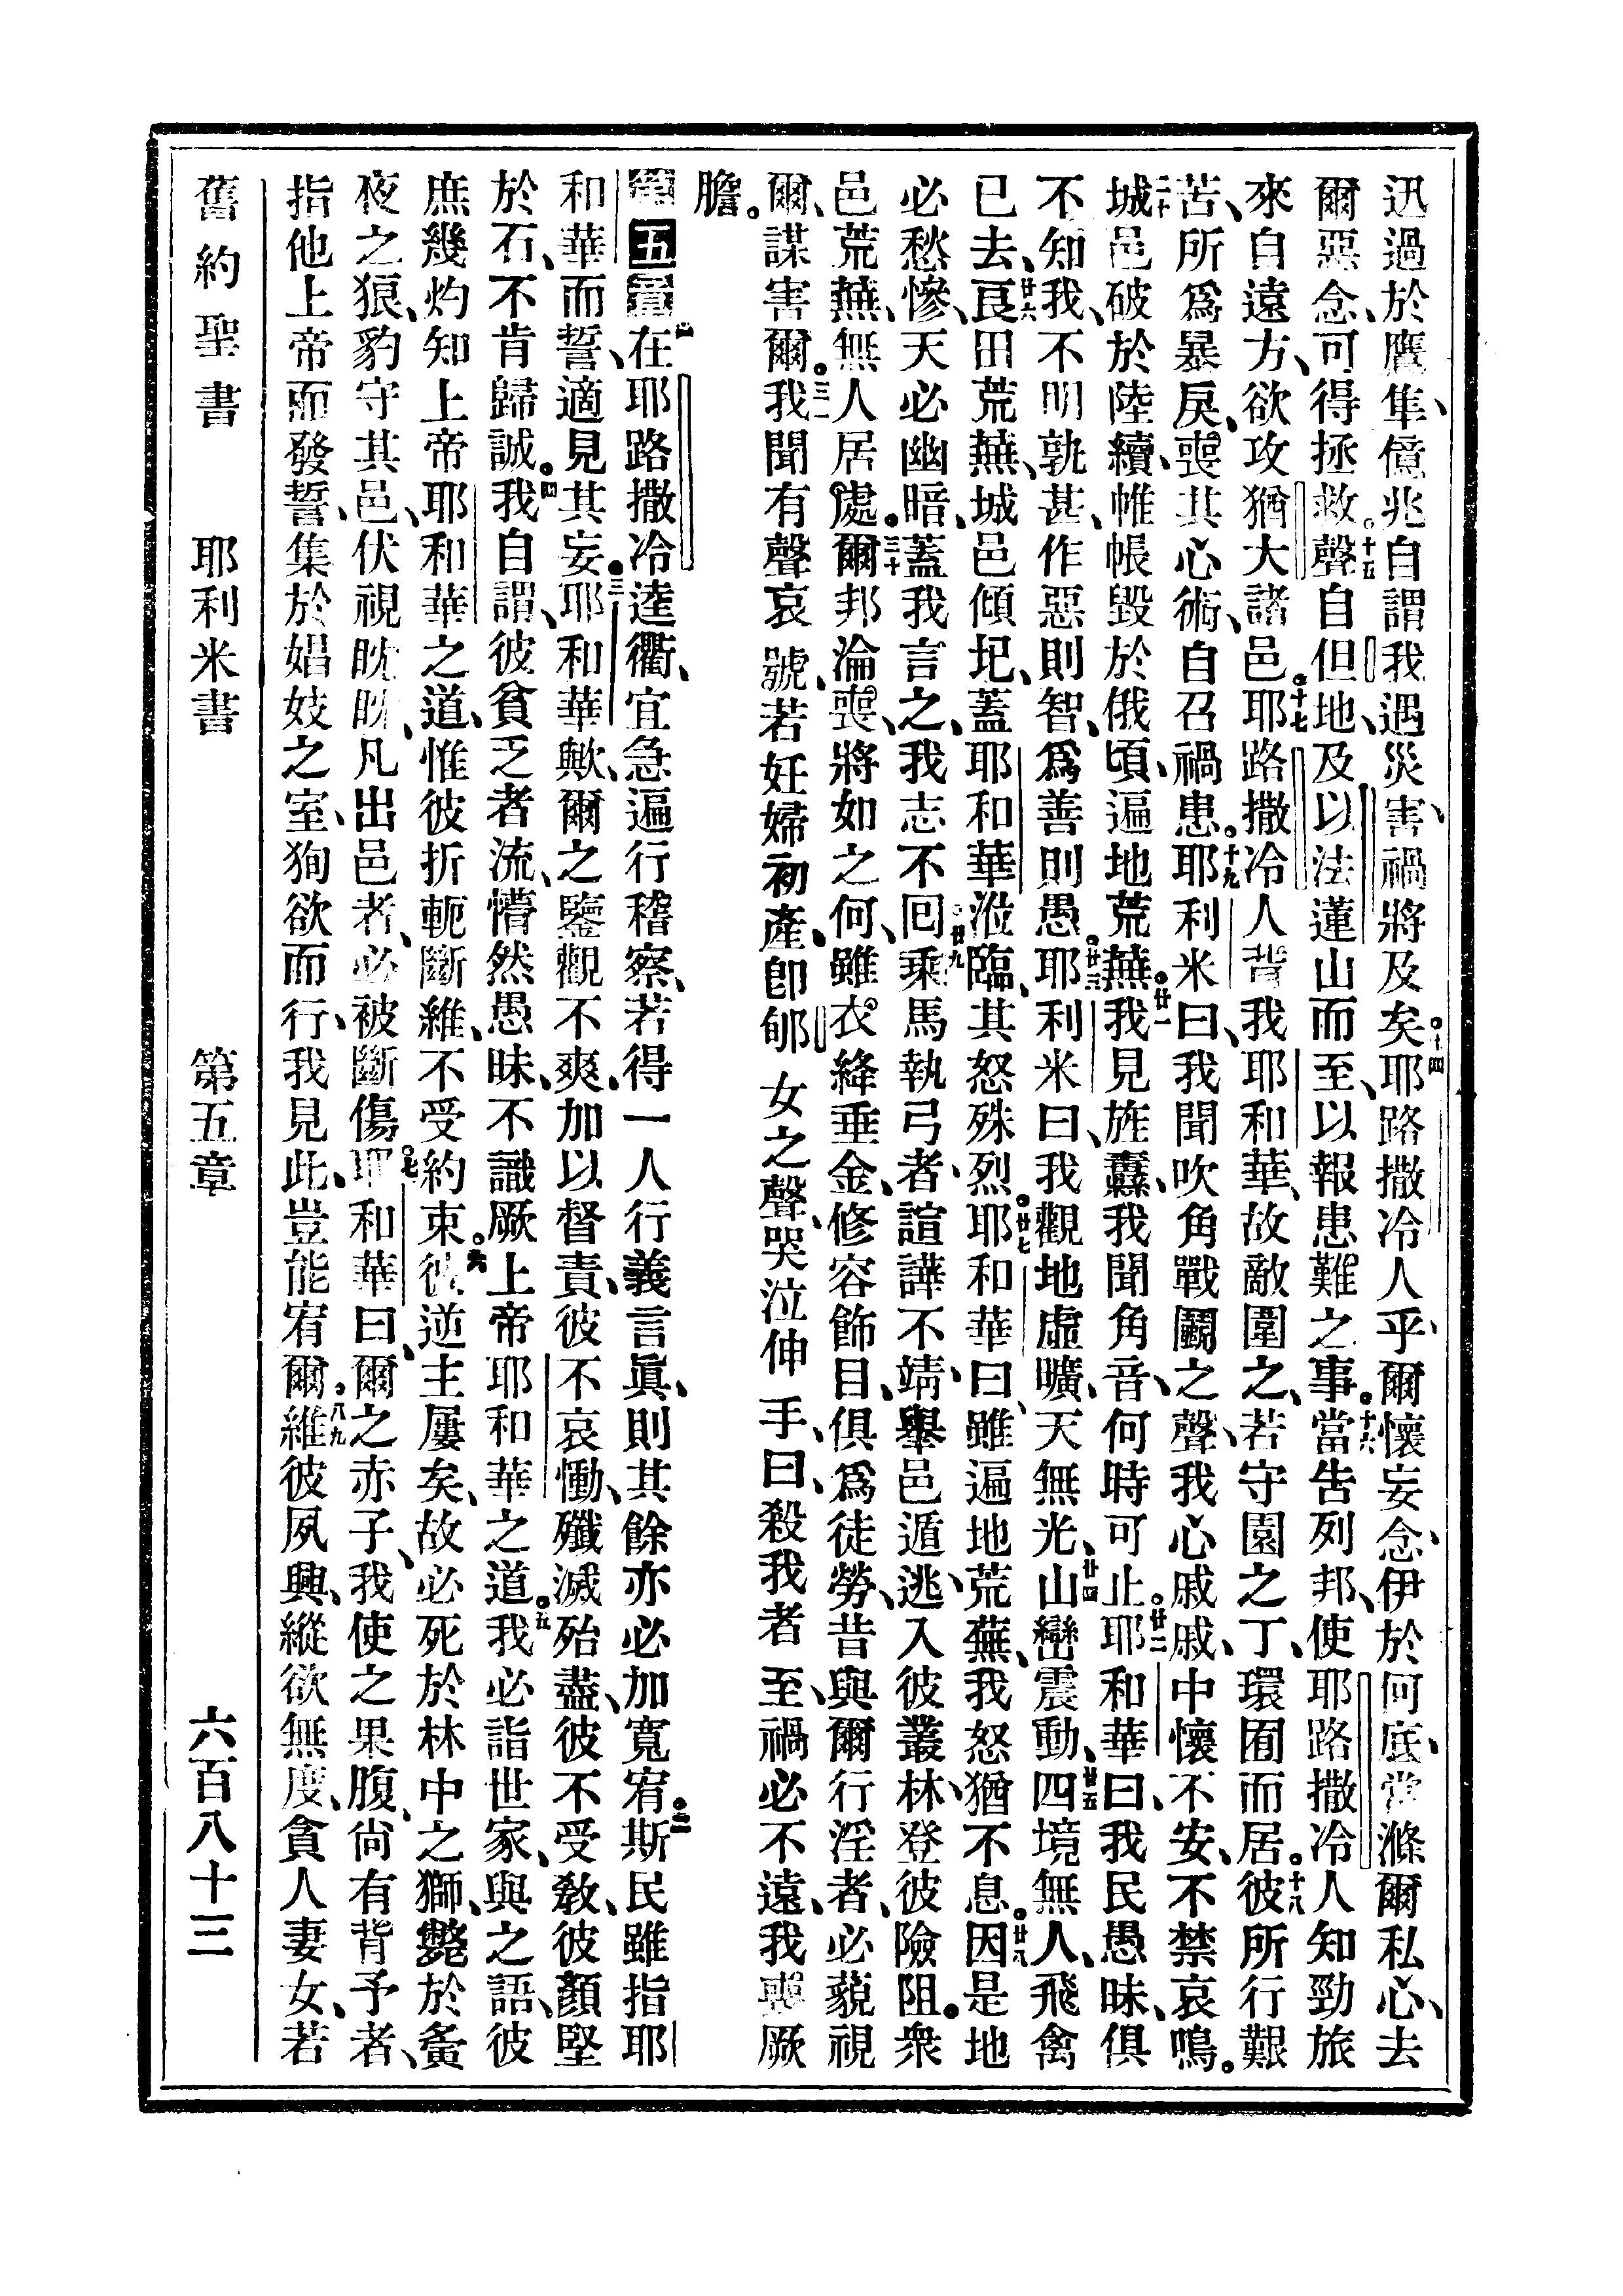 迅過於鷹隼、億兆自謂我遇災害、禍將及矣。十四耶路撒冷人乎、爾懷妄念、伊於何底、當滌爾私心、去
爾惡念、可得拯救。十五聲自但地、及以法蓮山而至、以報患難之事。十六當告列邦、使耶路撒冷人知勁旅
來自遠方、欲攻猶大諸邑。十七耶路撒冷人背我耶和華、故敵圍之、若守園之丁、環囿而居。十八彼所行艱
苦、所爲暴戾、喪其心術、自召禍患。十九耶利米曰、我聞吹角戰鬭之聲、我心戚戚、中懷不安、不禁哀鳴。
二十城邑破於陸續、帷帳毀於俄頃、遍地荒蕪。廿一我見旌纛、我聞角音、何時可止。廿二耶和華曰、我民愚昧、俱
不知我、不明孰甚、作惡則智、爲善則愚。廿三耶利米曰、我觀地虛曠、天無光、廿四山巒震動、廿五四境無人、飛禽
已去、廿六良田荒蕪、城邑傾圮、蓋耶和華涖臨、其怒殊烈。廿七耶和華曰、雖遍地荒蕪、我怒猶不息。廿八因是地
必愁慘、天必幽暗、蓋我言之、我志不回。廿九乘馬執弓者、諠譁不靖、舉邑遁逃、入彼叢林、登彼險阻。衆
邑荒蕪、無人居處。三十爾邦淪喪、將如之何、雖衣絳垂金、修容飾目、俱爲徒勞、昔與爾行淫者、必藐視
爾、謀害爾。三一我聞有聲哀號、若妊婦初產、卽郇女之聲、哭泣伸手、曰、殺我者至、禍必不遠、我喪厥
膽。
第五章 一在耶路撒冷逵衢、宜急遍行稽察、若得一人行義言眞、則其餘亦必加寬宥。二斯民雖指耶
和華而誓、適見其妄。三耶和華歟、爾之鑒觀不爽、加以督責、彼不哀慟、殲滅殆盡、彼不受敎、彼顏堅
於石、不肯歸誠。四我自謂、彼貧乏者流、懵然愚昧、不識厥上帝耶和華之道。五我必詣世家、與之語、彼
庶幾灼知上帝耶和華之道、惟彼折軛斷維、不受約束。六彼逆主屢矣、故必死於林中之獅、斃於昏
夜之狼、豹守其邑、伏視眈眈、凡出邑者、必被斷傷。七耶和華曰、爾之赤子、我使之果腹、尙有背予者、
指他上帝而發誓、集於娼妓之室、狥欲而行、我見此、豈能宥爾。八九維彼夙興、縱欲無度、貪人妻女、若
舊約聖書 耶利米書 第五章 六百八十三